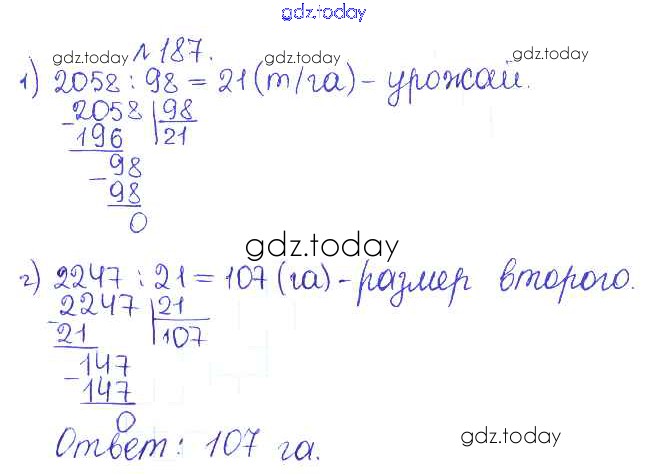 gdz.today
№ 187.
gdz.today gdz.today gdz.today
1) 2058 : 98 = 21 (т/га) - урожай.
- 2058 | 98
196 | 21
- 98
98
0
gdz.today
2) 2247 : 21 = 107 (га) - размер второго.
- 2247 | 21
21 | 107
- 147
147
0
Ответ: 107 га.
gdz.today